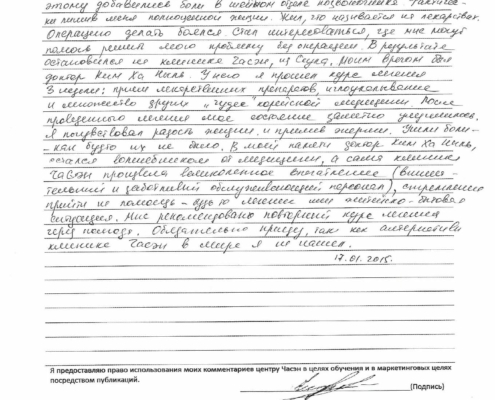 этому добавились боли в шейном отделе позвоночника. Фактичес-
ки лишив меня полноценной жизни. Жил, что называется на лекарствах.
Операцию делать боялся. Стал интересоваться, где мне могут
помочь решить мою проблему без операции. В результате
остановился на клинике Часэн, из Сеула. Моим врачом был
доктор Ким Ха Ниль. У него я прошел курс лечения
3 недели: прием лекарственных препаратов, иглоукалывание
и множество других "чудес" корейской медицины. После
проведенного лечения мое состояние заметно улучшилось.
Я почувствовал радость жизни и прилив энергии. Ушли боли -
как будто их не было. В моей памяти доктор Ким Ха Ниль,
остался волшебником от медицины, а сама клиника
Часэн произвела великолепное впечатление (внима-
тельный и заботливый обслуживающий персонал), стремление
прийти на помощь - будь то лечение или житейско-бытовая
ситуация. Мне рекомендовано повторный курс лечения
через полгода. Обязательно приеду, так как альтернативы
клинике Часэн в мире я не нашел.
17.01.2015.
Я предоставляю право использования моих комментариев центру Часэн в целях обучения и в маркетинговых целях
посредством публикаций.
(Подпись)